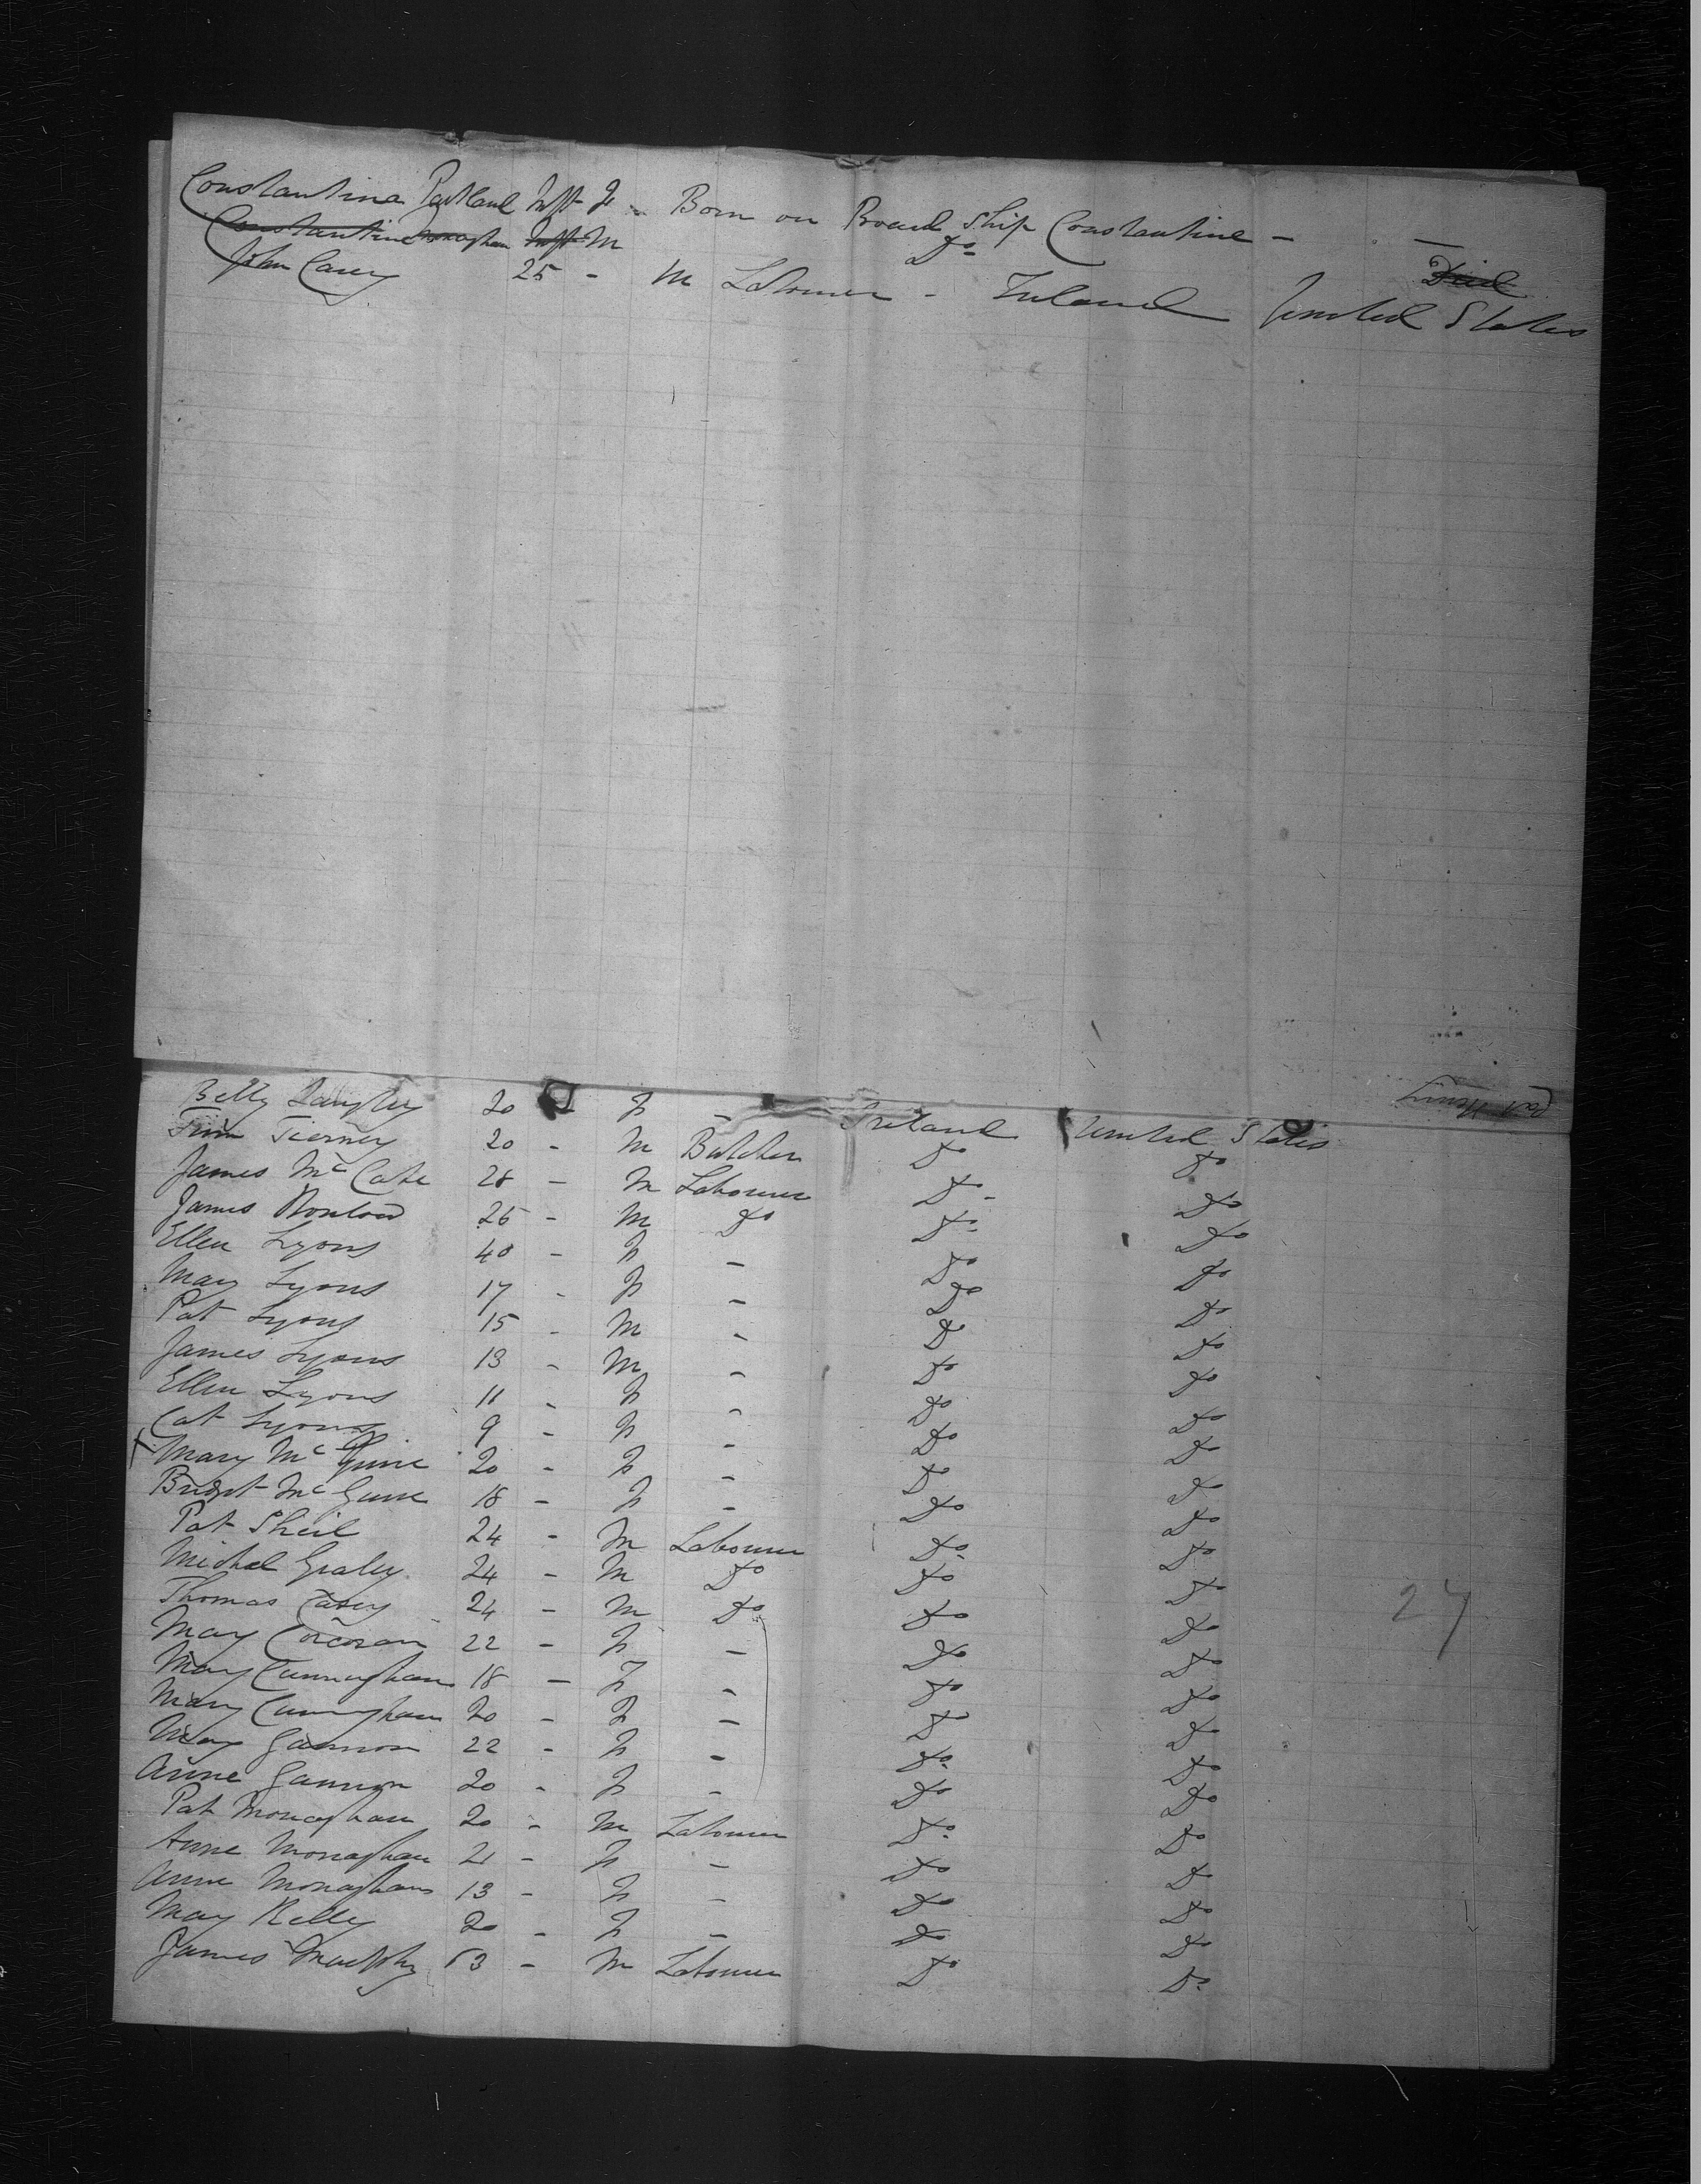 Constantina Partland Inft F - Born on Board Ship Constantine - -
Constantine Monaghan Inft M Do Died
John Carey 25 - M Labourer - Ireland United States
Betty 20 - F - Ireland United States
Tim Tierney 20 - M Butcher Do Do
James Mc Cabe 28 - M Labourer Do - Do
James 26 - M Do Do Do
Ellen Lyons 40 - F - Do Do
Mary Lyons 17 - F - Do Do
Pat Lyons 15 - M - Do Do
James Lyons 13 - M - Do Do
Ellen Lyons 11 - F - Do Do
Cat Lyons 9 - F - Do Do
Mary Mc 20 - F - Do Do
Bridgt Mc 18 - F - Do Do
Pat Sheil 24 - M Labourer Do Do
Michal Graley 24 - M Do Do Do
Thomas Casey 24 - M Do Do Do
Mary Corcoran 22 - F - Do Do
Mary Cunnagham 18 - F - Do Do
Mary Cunningham 20 - F - Do Do
Mary Gannon 22 - F - Do Do
Anne Gannon 20 - F - Do Do
Pat Monaghan 20 - M Labourer Do Do
Anne Monaghan 21 - F - Do Do
Anne Monaghan 13 - F - Do Do
Mary Kelly 20 - F - Do Do
James Murphy 53 - M Labourer Do Do
27